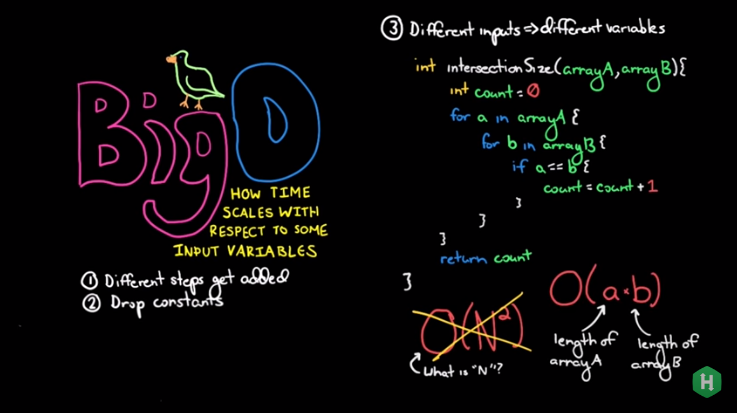 Big O
HOW TIME
SCALES WITH
RESPECT TO SOME
INPUT VARIABLES
① Different steps get added
② Drop constants
③ Different inputs ⇒ different variables
int intersectionSize(arrayA, arrayB){
int count = 0
for a in arrayA {
for b in arrayB {
if a == b {
count = count + 1
}
}
}
return count
}
O(N²)
What is "N"?
O(a*b)
length of
arrayA
length of
arrayB
H